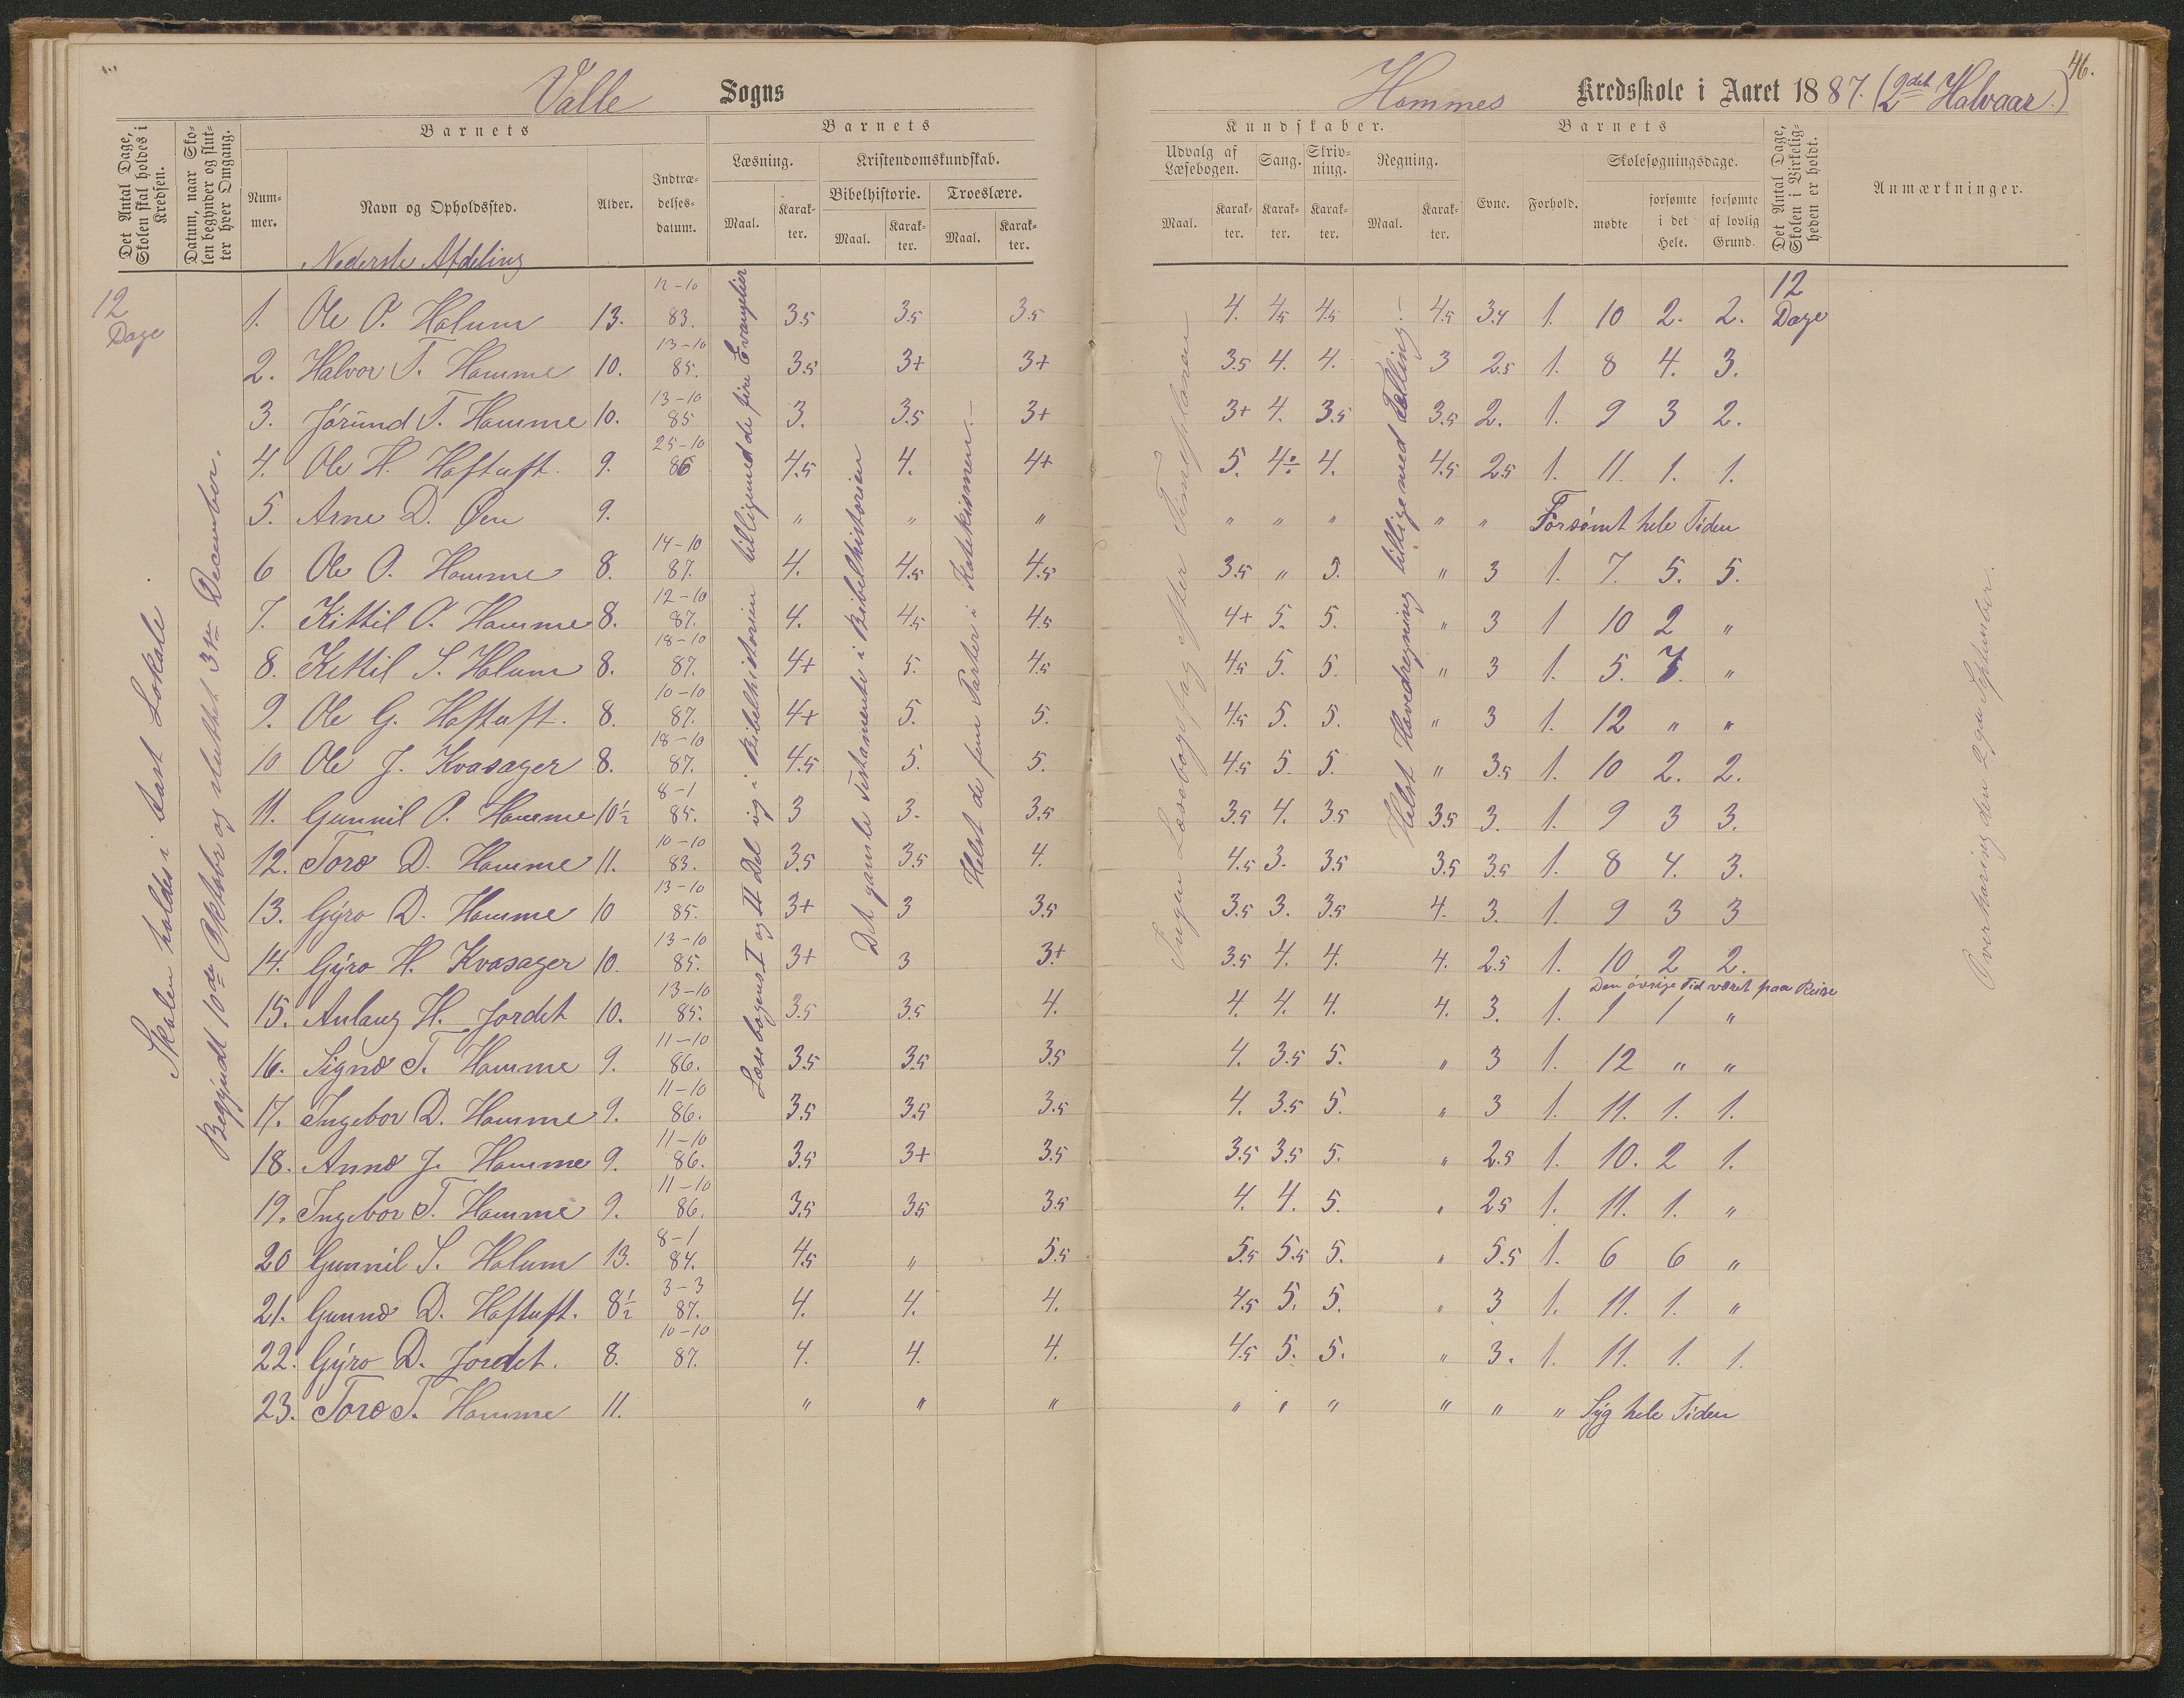 46.
Valle Sogns
Hommes Kredsskole i Aaret 1887. (2det Halvaar.)
Det Antal Dage, Skolen skal holdes i Kredsen.
Datum, naar Skolen begynder og slutter hver Omgang.
Barnets
Barnets
Kundskaber.
Barnets
Det Antal Dage, Skolen i Virkeligheden er holdt.
Anmærkninger.
Nummer.
Navn og Opholdssted.
Alder.
Indtrædelsesdatum.
Læsning.
Kristendomskundskab.
Bibelhistorie.
Troeslære.
Maal. Karakter. Maal. Karakter. Maal. Karakter.
Udvalg af Læsebogen.
Sang.
Skrivning.
Regning.
Evne.
Forhold.
Skolesøgningsdage.
Maal. Karakter. Karakter. Karakter. Maal. Karakter.
mødte
forsømte i det Hele.
forsømte af lovlig Grund.
Nederste Afdeling
12 Dage
Skolen holdes i fast Lokale.
Begyndt 10de Oktober og sluttet 3die December.
Læsebogens I og II Del og i Bibelhistorien tilligemed de fire Evangelier
Det gamle Testamente i Bibelhistorien
Helst de fem Parter i Katekismen.
Ingen Læsebogsfag efter Timeplanen
Helst Hovedregning tilligemed Tælling.
12 Dage
Overhøring den 29de September.
1. Ole O. Holum 13. 12-10 83. 3.5 3.5 3.5 4. 4.5 4.5 4.5 3.4 1. 10 2. 2.
2. Halvor T. Homme 10. 13-10 85. 3.5 3+ 3+ 3.5 4. 4. 3 2.5 1. 8 4. 3.
3. Jórund T. Homme 10. 13-10 85 3. 3.5 3+ 3+ 4. 3.5 3.5 2. 1. 9 3 2.
4. Ole H. Haftuft. 9. 25-10 86 4.5 4. 4+ 5. 4÷ 4. 4.5 2.5 1. 11. 1. 1.
5. Arne D. Øen 9. " " " " " " " " Forsømt hele Tiden
6 Ole O. Homme 8. 14-10 87. 4. 4.5 4.5 3.5 " 5. " 3 1. 7. 5. 5.
7. Kittil O. Homme 8. 12-10 87. 4. 4.5 4.5 4+ 5. 5. " 3 1 10 2 "
8. Kittil S. Holum 8. 18-10 87. 4+ 5. 4.5 4.5 5. 5. " 3 1. 5. 7. "
9. Ole G. Haftuft. 8. 10-10 87. 4+ 5. 5. 4.5 5. 5. " 3 1. 12 " "
10 Ole J. Kvasager 8. 18-10 87. 4.5 5. 5. 4.5 5. 5. " 3.5 1. 10 2. 2.
11. Gunnil O. Homme 10½ 8-1 85. 3 3. 3.5 3.5 4. 3.5 3.5 3. 1. 9 3 3.
12. Toro D. Homme 11. 10-10 83. 3.5 3.5 4. 4.5 3. 3.5 3.5 3.5 1. 8 4. 3.
13. Gýro D. Homme 10 13-10 85. 3+ 3 3.5 3.5 3. 3.5 4. 3. 1. 9 3 3
14. Gýro H. Kvasager 10. 13-10 85. 3+ 3 3+ 3.5 4. 4. 4. 2.5 1. 10 2 2.
Den øvrige Tid været paa Reise
15. Aulaug H. Jordet 10. 13-10 85. 3.5 3.5 4. 4. 4. 4. 4. 3. 1. 1 1 "
16. Signe T. Homme 9. 11-10 86. 3.5 3.5 3.5 4. 3.5 5. " 3 1. 12 " "
17. Ingebor D. Homme 9. 11-10 86. 3.5 3.5 3.5 4. 3.5 5. " 3 1. 11. 1. 1.
18. Anne J. Homme 9. 11-10 86. 3.5 3+ 3.5 3.5 3.5 5. " 2.5 1. 10. 2 1.
19. Ingebor T. Homme 9. 11-10 86. 3.5 3.5 3.5 4. 4. 5. " 2.5 1. 11. 1. "
20 Gunnil S. Holum 13. 8-1 84. 4.5 " 5.5 5.5 5.5 5. " 5.5 1. 6 6 "
21. Gunne D. Haftuft. 8½ 3-3 87. 4. 4. 4. 4.5 5. 5. " 3 1. 11. 1. "
22. Gýro D. Jordet. 8. 10-10 87. 4. 4. 4. 4.5 5. 5. " 3. 1. 11. 1. 1.
23. Toro T. Homme 11. " " " " " " " " " Syg hele Tiden